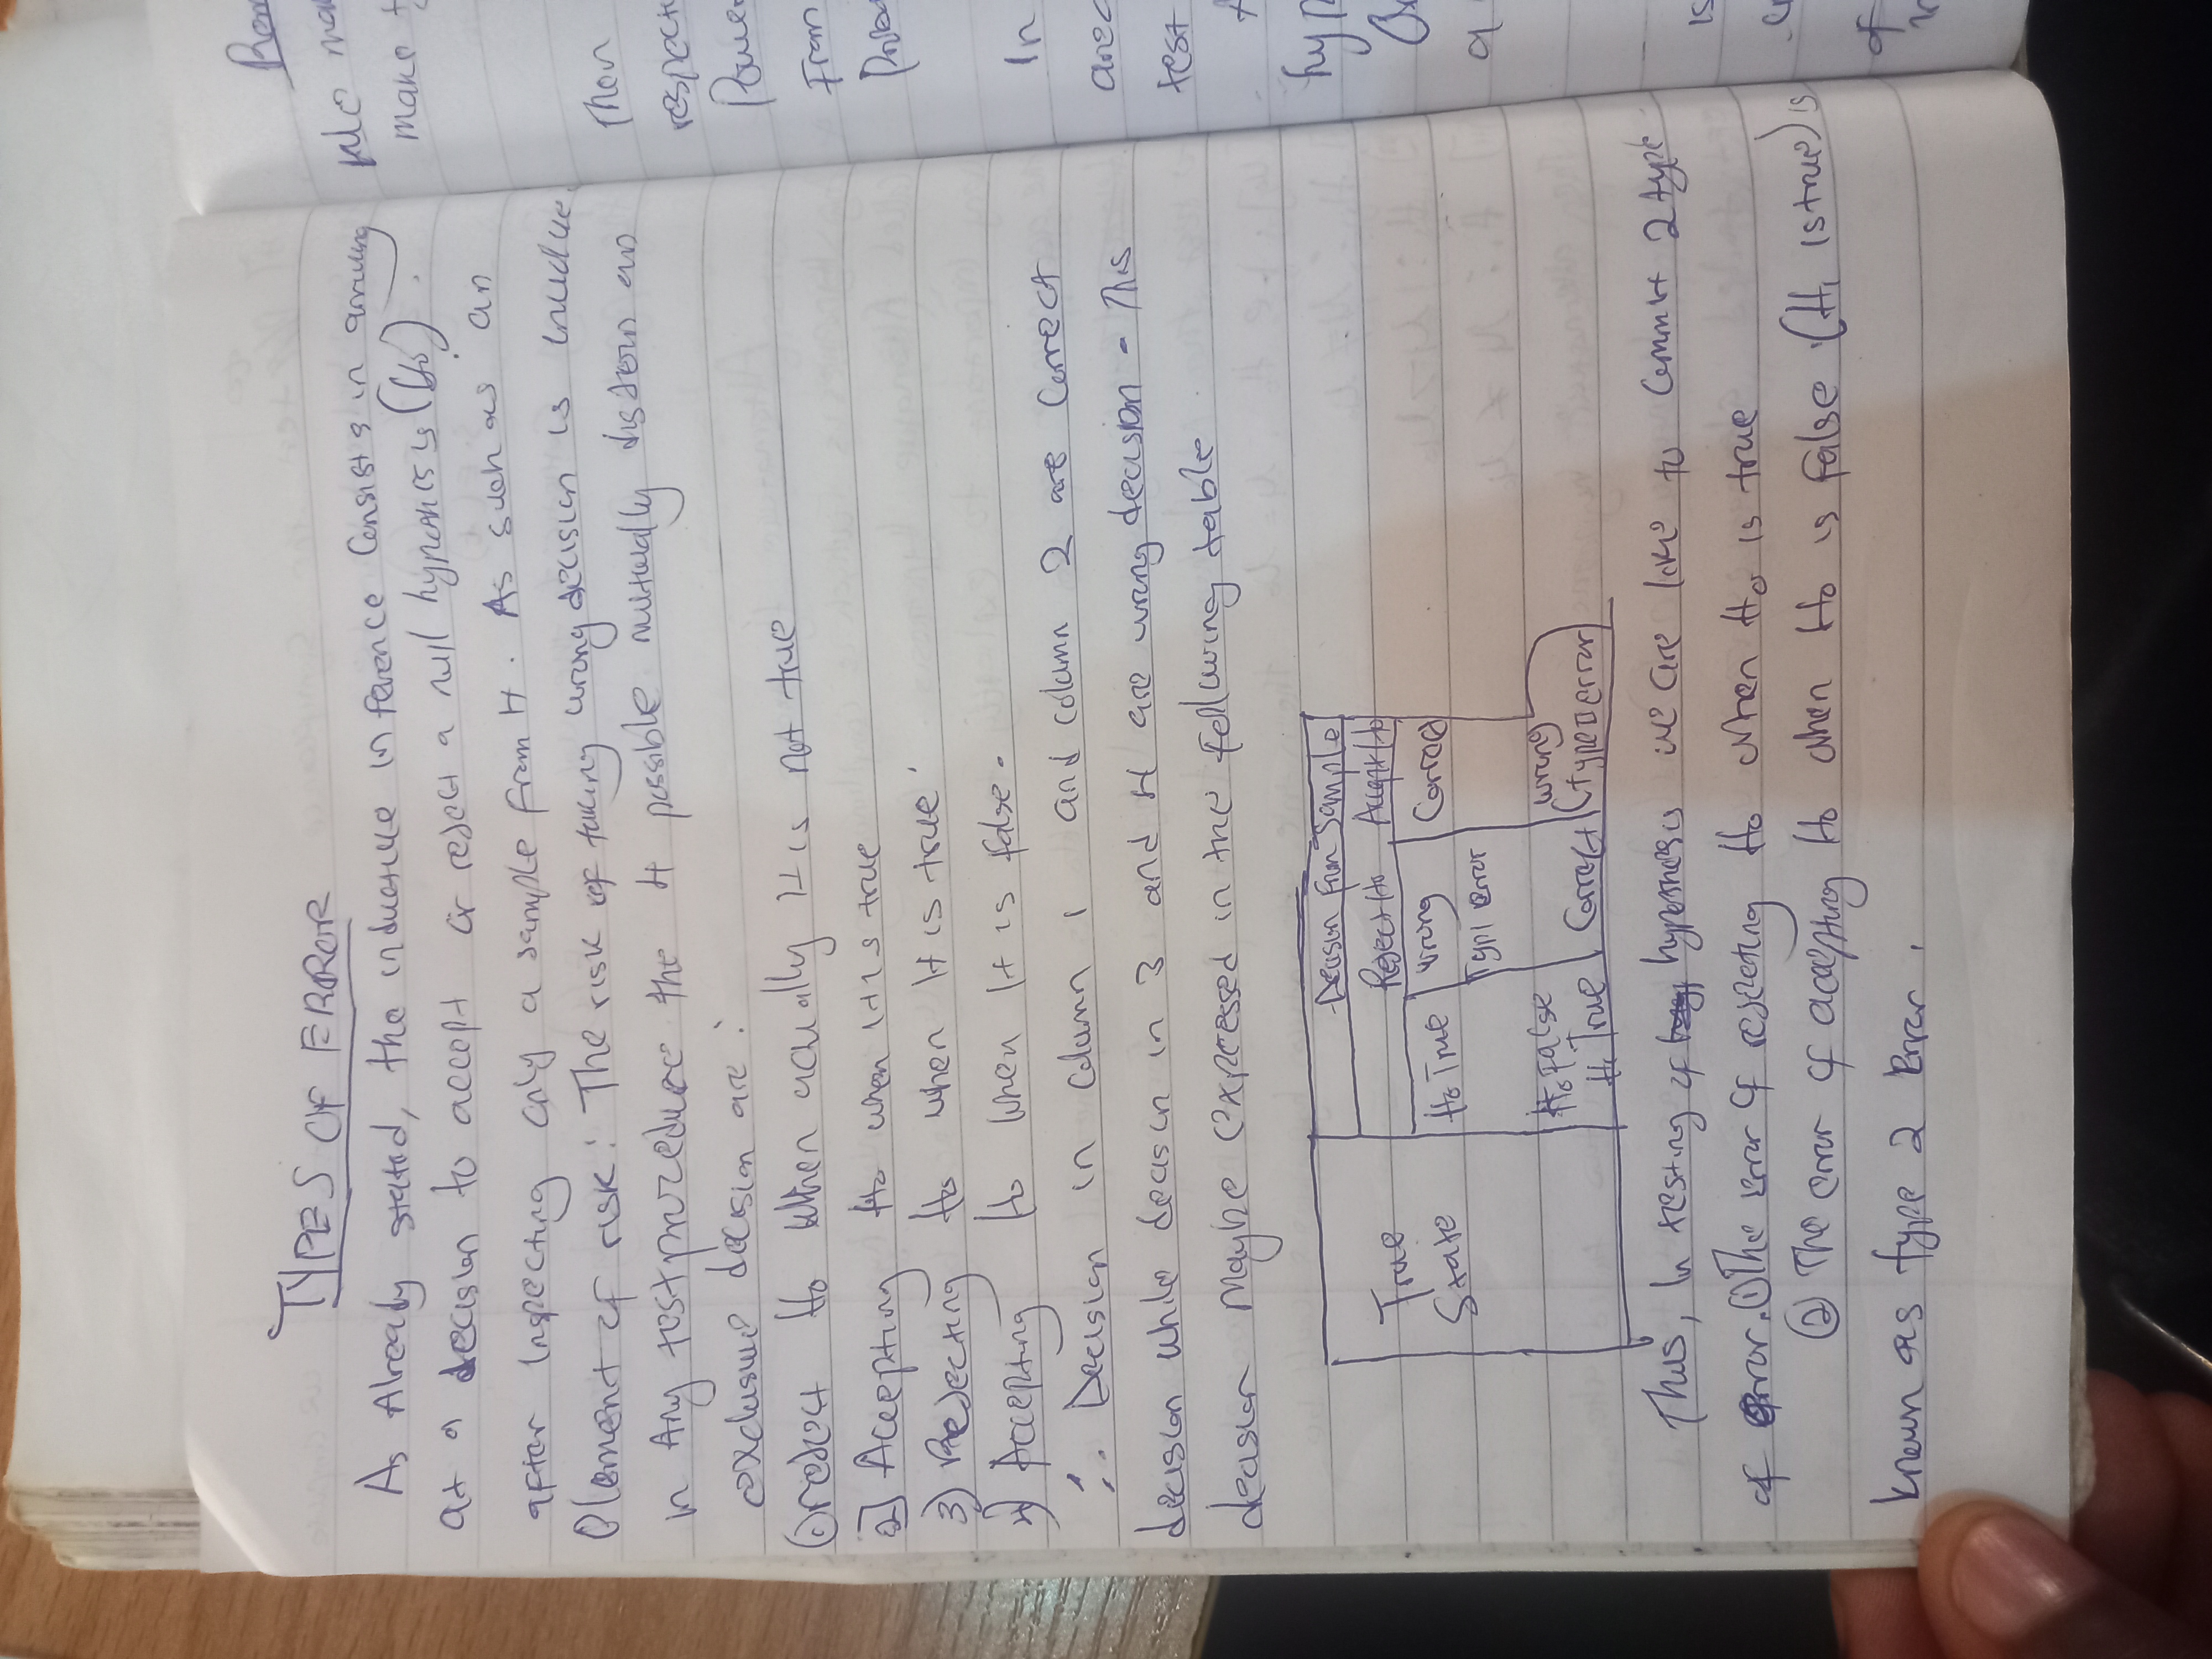 TYPES OF ERROR
As Already stated, the inductive inference Consists in arriving
at a decision to accept or reject a null hypothesis (H0).
after Inspecting only a sample from it. As such as an
Element of risk: The risk of taking wrong decision is
in Any test procedure the 4 possible mutually an
exclusive decision are:
① reject H0 When actually it is not true
2] Accepting H0 when it is true
3) Rejecting H0 when It is true
4) Accepting H0 when It is false.
∴ Decision in column 1 and column 2 are correct
decision while decision in 3 and 4 are wrong decision - This
decision maybe expressed in the following table
Decision from Sample
Reject H0 Accept H0
True
State
H0 True Wrong Correct
Typ1 error
H0 False wrong
H1 True Correct (type II error
Thus, In testing of hypothesis we are like to commit 2 type
of error. ① The error of rejecting H0 when H0 is true
② The error of accepting H0 when H0 is false (H1 is true) is
known as type 2 Error.
make
Then
Power
From
In
test
a
of